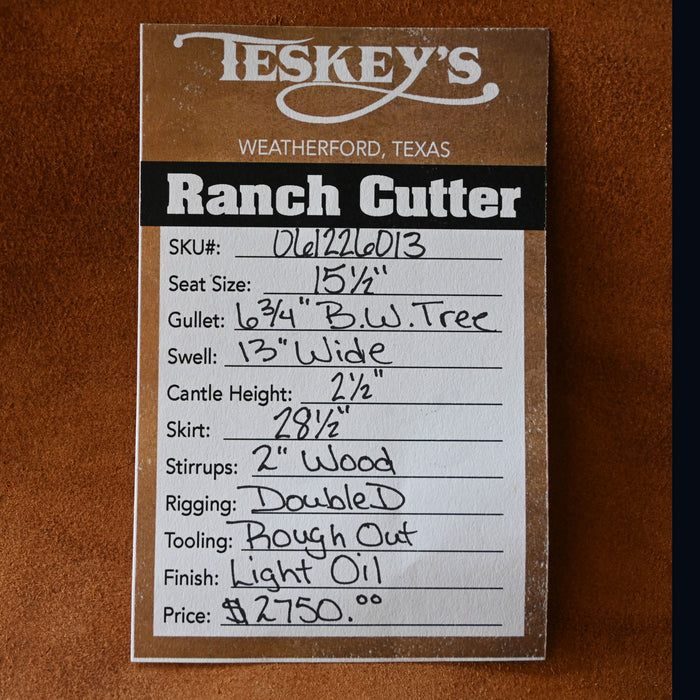 TESKEY'S
WEATHERFORD, TEXAS
Ranch Cutter
SKU#: 061226013
Seat Size: 15½"
Gullet: 6¾" B.W. Tree
Swell: 13" Wide
Cantle Height: 2½"
Skirt: 28½"
Stirrups: 2" Wood
Rigging: Double D
Tooling: Rough Out
Finish: Light Oil
Price: $2750.⁰⁰